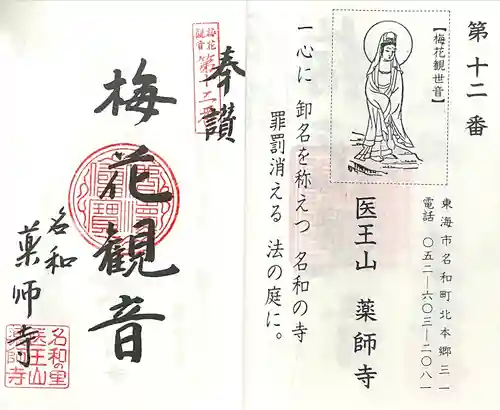 第十二番
【梅花観世音】
東海市名和町北本郷三一
電話　〇五二―六〇三―二〇八一
医王山　薬師寺
一心に　卸名を称えつ　名和の寺
罪罰消える　法の庭に。
奉讃
梅花観音第十二番
梅花観音
名和
薬師寺
名和の里
医王山
薬師寺